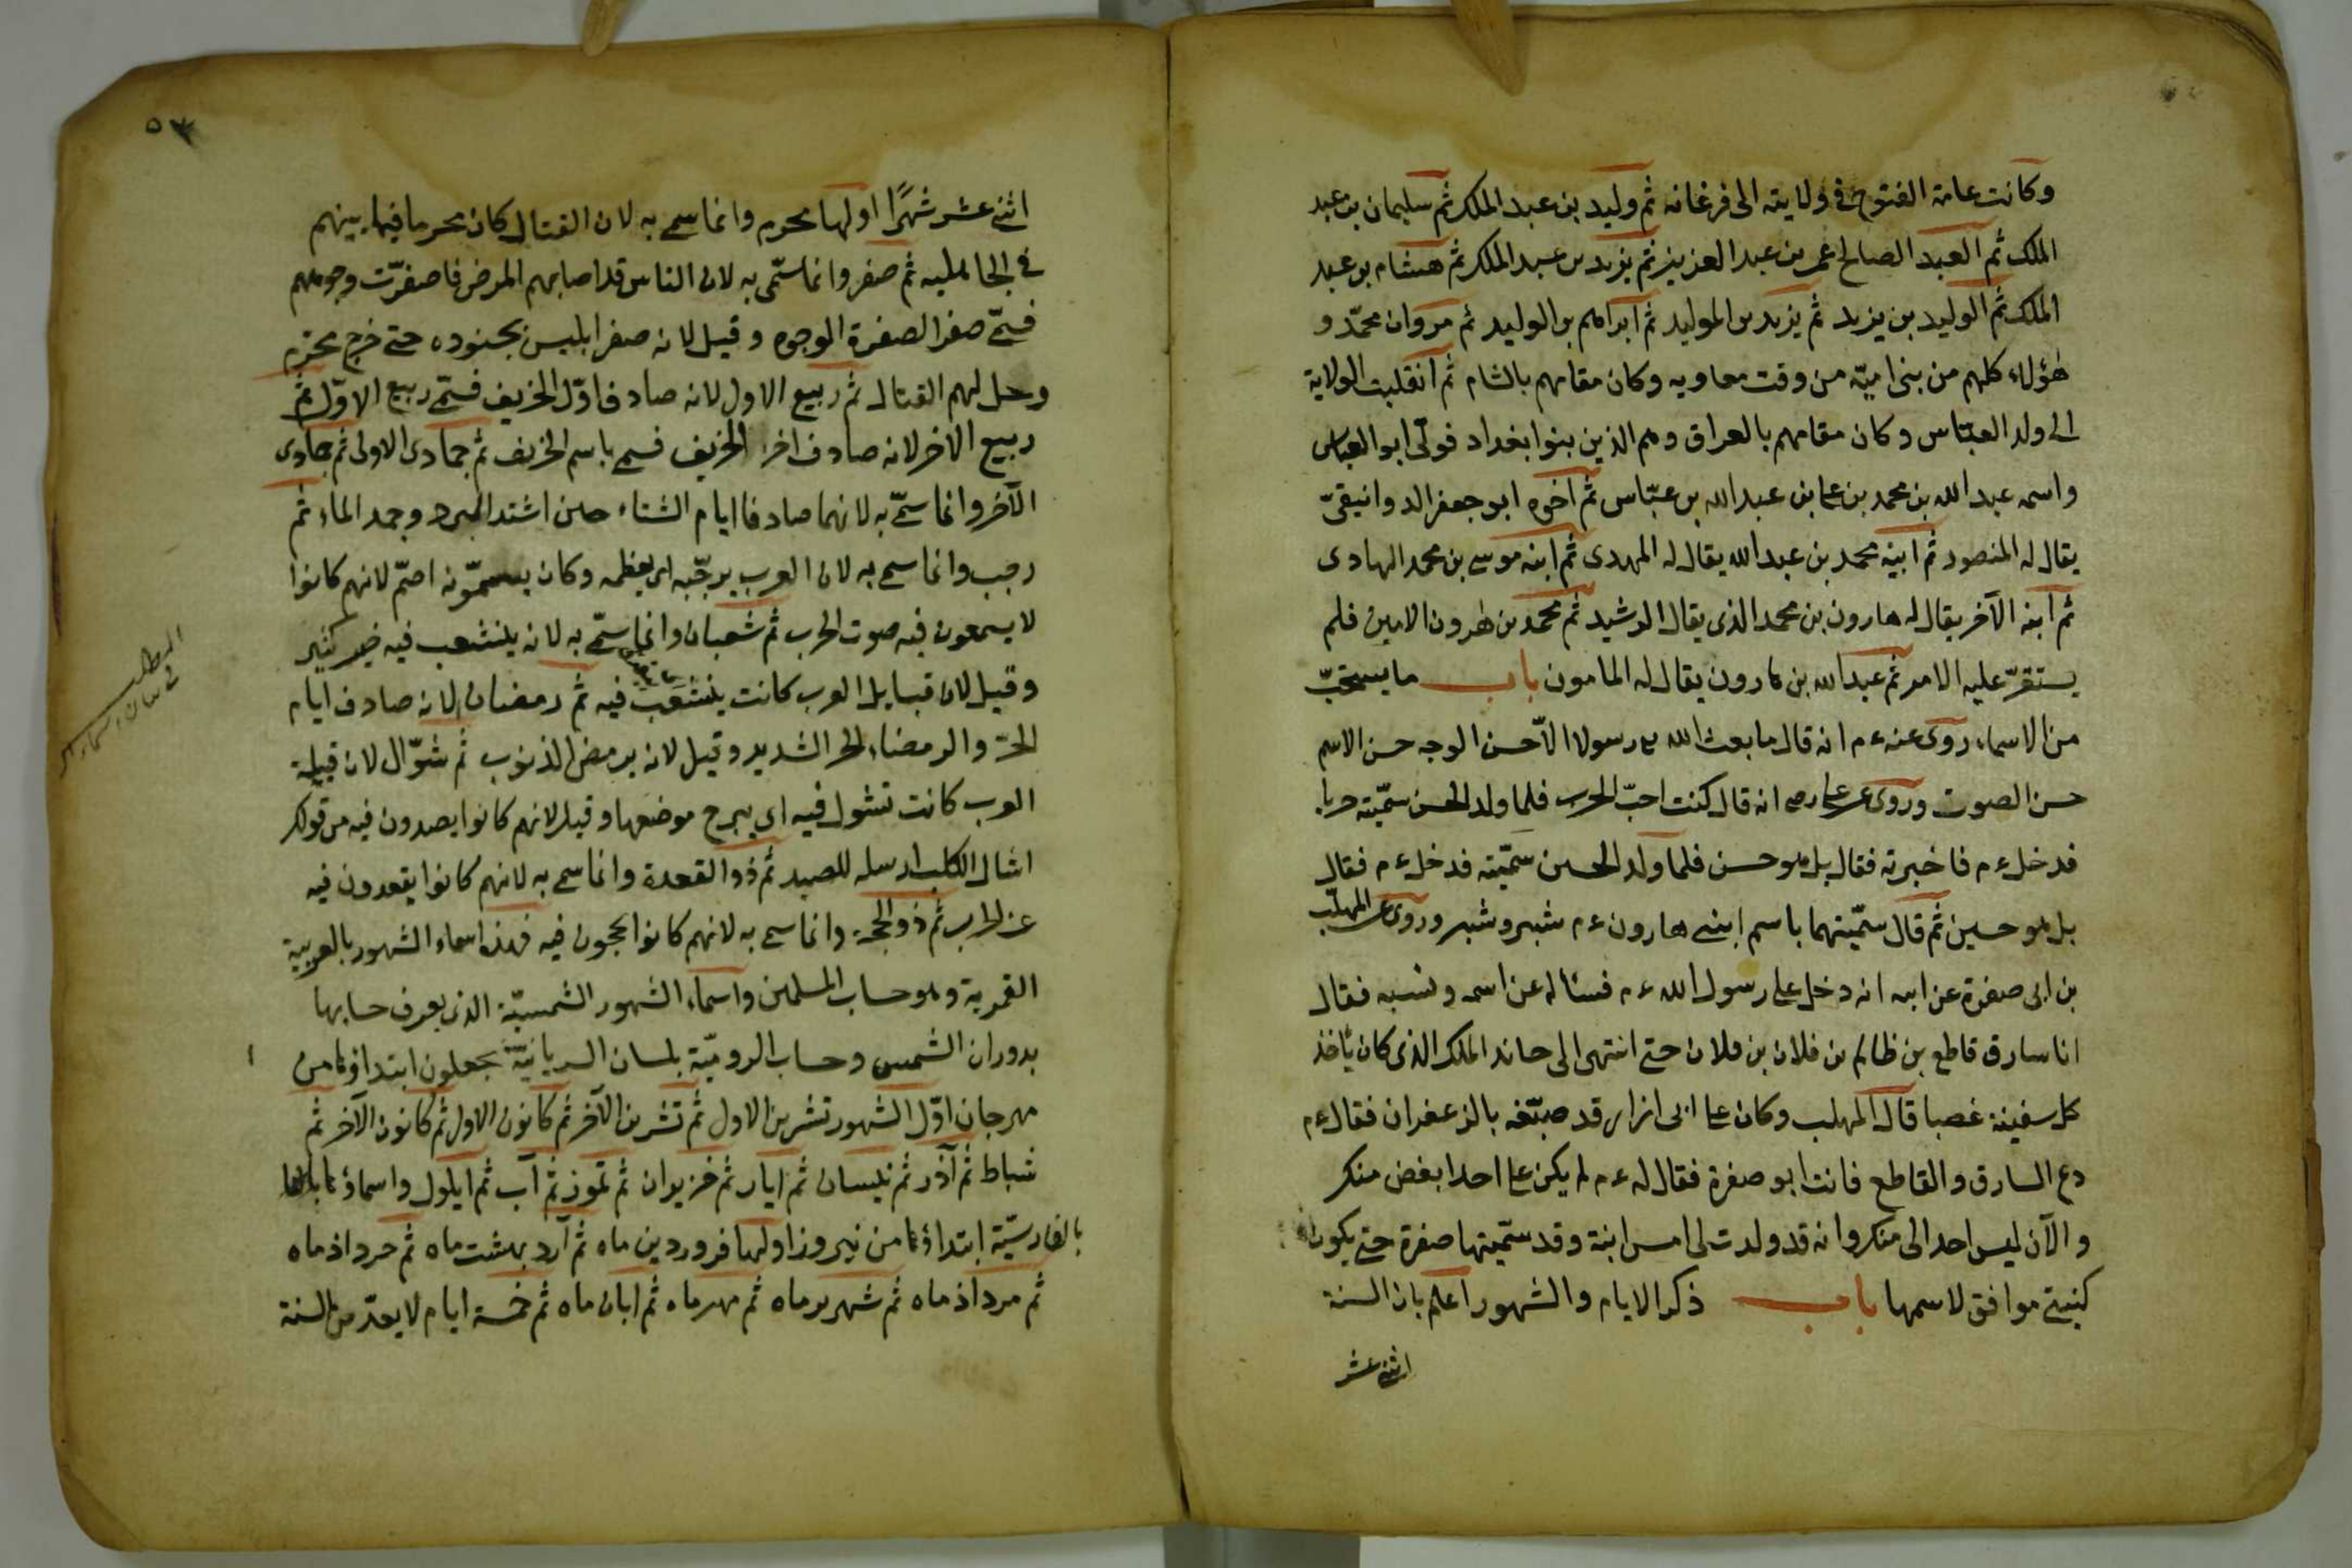 وكانت عامة الفتوح فى ولايته الى فرغانه ثم وليد بن عبد الملك ثم سليمان بن عبد
الملك ثم العبد الصالح عمر بن عبد العزيز ثم يزيد بن عبد الملك ثم هشام بن عبد
الملك ثم الوليد بن يزيد ثم يزيد بن الوليد ثم ابراهيم بن الوليد ثم مروان محمّد و
هٰؤلاء كلهم من بنى اميّة من وقت معاويه وكان مقامهم بالشام ثم انقلبت الولاية
الى ولد العبّاس وكان مقامهم بالعراق وهم الذين بنوا بغداد فولّى ابو العباس
واسمه عبد الله بن محمد بن على بن عبد الله بن عبّاس ثم اخوه ابو جعفر الدوانيقىّ
يقال له المنصور ثم ابنه محمد بن عبد الله يقال له المهدى ثم ابنه موسى بن محمد الهادى
ثم ابنه الآخر يقال له هارون بن محمد الذى يقال الرشيد ثم محمد بن هٰرون الامين فلم
يستقرّ عليه الامر ثم عبد الله بن هارون يقال له المامون باب ما يستحبّ
من الاسماء روى عنه ءم انه قال ما بعث الله رسولا الّا حسن الوجه حسن الاسم
حسن الصوت وروى عن على رضى انه قال كنت احبّ الحرب فلما ولد الحسن سمّيته حربا
فدخل ءم فاخبرته فقال بل هو حسن فلما ولد الحسين سمّيته فدخل ءم فقال
بل هو حسين ثم قال سمّيتهما باسم ابنى هارون ءم شبر وشبير وروى عن المهلّب
بن ابى صفرة عن ابيه انه دخل على رسول الله ءم فسئاله عن اسمه ونسبه فقال
انا سارق قاطع بن ظالم بن فلان بن فلان حتى انتهى الى الملك الذى كان ياخذ
كل سفينة غصبا قال المهلب وكان على ابى ازار قد صبّغه بالزعفران فقال ءم
دع السارق والقاطع فانت ابو صفرة فقال له ءم لم يكن على احد ابغض منكر
والآن ليس احد الى منكر وانه قد ولدت لى امس ابنة وقد سمّيتها صفرة حتى يكون
كنيتى موافق لاسمها باب ذكر الايام والشهور اعلم بان السنة
اثنى عشر
٥٣
اثنى عشر شهرًا اولها محرم وانما سمى به لان القتال كان محرما فيما بينهم
فى الجاهليه ثم صفر وانما سمّى به لان الناس قد اصابهم المرض فاصفرّت وجوههم
فسمّى صفر الصفرة الوجوه وقيل لانه صفر ابليس بجنوده حتى خرج محرم
وحل لهم القتال ثم ربيع الاول لانه صادف اوّل الخريف فسمّى ربيع الاوّل ثم
ربيع الاخر لانه صادف اخر الخريف فسمى باسم الخريف ثم جمادى الاولى ثم جمادى
الآخر وانما سمّى به لانهما صادفا ايام الشتاء حين اشتد البرد وجمد الماء ثم
رجب وانما سمى به لان العرب يرجّبه اى يعظمه وكان يسمّونه اصمّ لانهم كانوا
لا يسمعون فيه صوت الحرب ثم شعبان وانما سمّى به لانه ينشعب فيه خير كثير
وقيل لان قبايل العرب كانت ينشعب فيه ثم رمضان لانه صادف ايام
الحرّ والرمضاء الحر الشديد وقيل لانه يرمض الذنوب ثم شوّال لان قبيلة
العرب كانت تشول فيه اى يبرح موضعها وقيل لانهم كانوا يصيدون فيه من قولك
اشال الكلب ارسله للصيد ثم ذو القعدة وانما سمى به لانهم كانوا يقعدون فيه
عن الحرب ثم ذو الحجة وانما سمى به لانهم كانوا يحجون فيه فهذه اسماء الشهور بالعربية
القمرية وهو حساب المسلمين واسماء الشهور الشمسيّة الذى يعرف حسابها
بدوران الشمس وحساب الروميّة بلسان السريانيّة يجعلون ابتداؤها من
مهرجان اوّل الشهور تشرين الاول ثم تشرين الآخر ثم كانون الاول ثم كانون الآخر ثم
شباط ثم آذر ثم نيسان ثم ايار ثم خزيران ثم تموز ثم آب ثم ايلول واسماؤها
بالفارسيّة ابتداؤها من نيروز اولها فروردين ماه ثم آرد بهشت ماه ثم خرداذ ماه
ثم مرداذ ماه ثم شهرير ماه ثم مهر ماه ثم ابان ماه ثم خمسة ايام لا يعدّ من السنة
المطلب